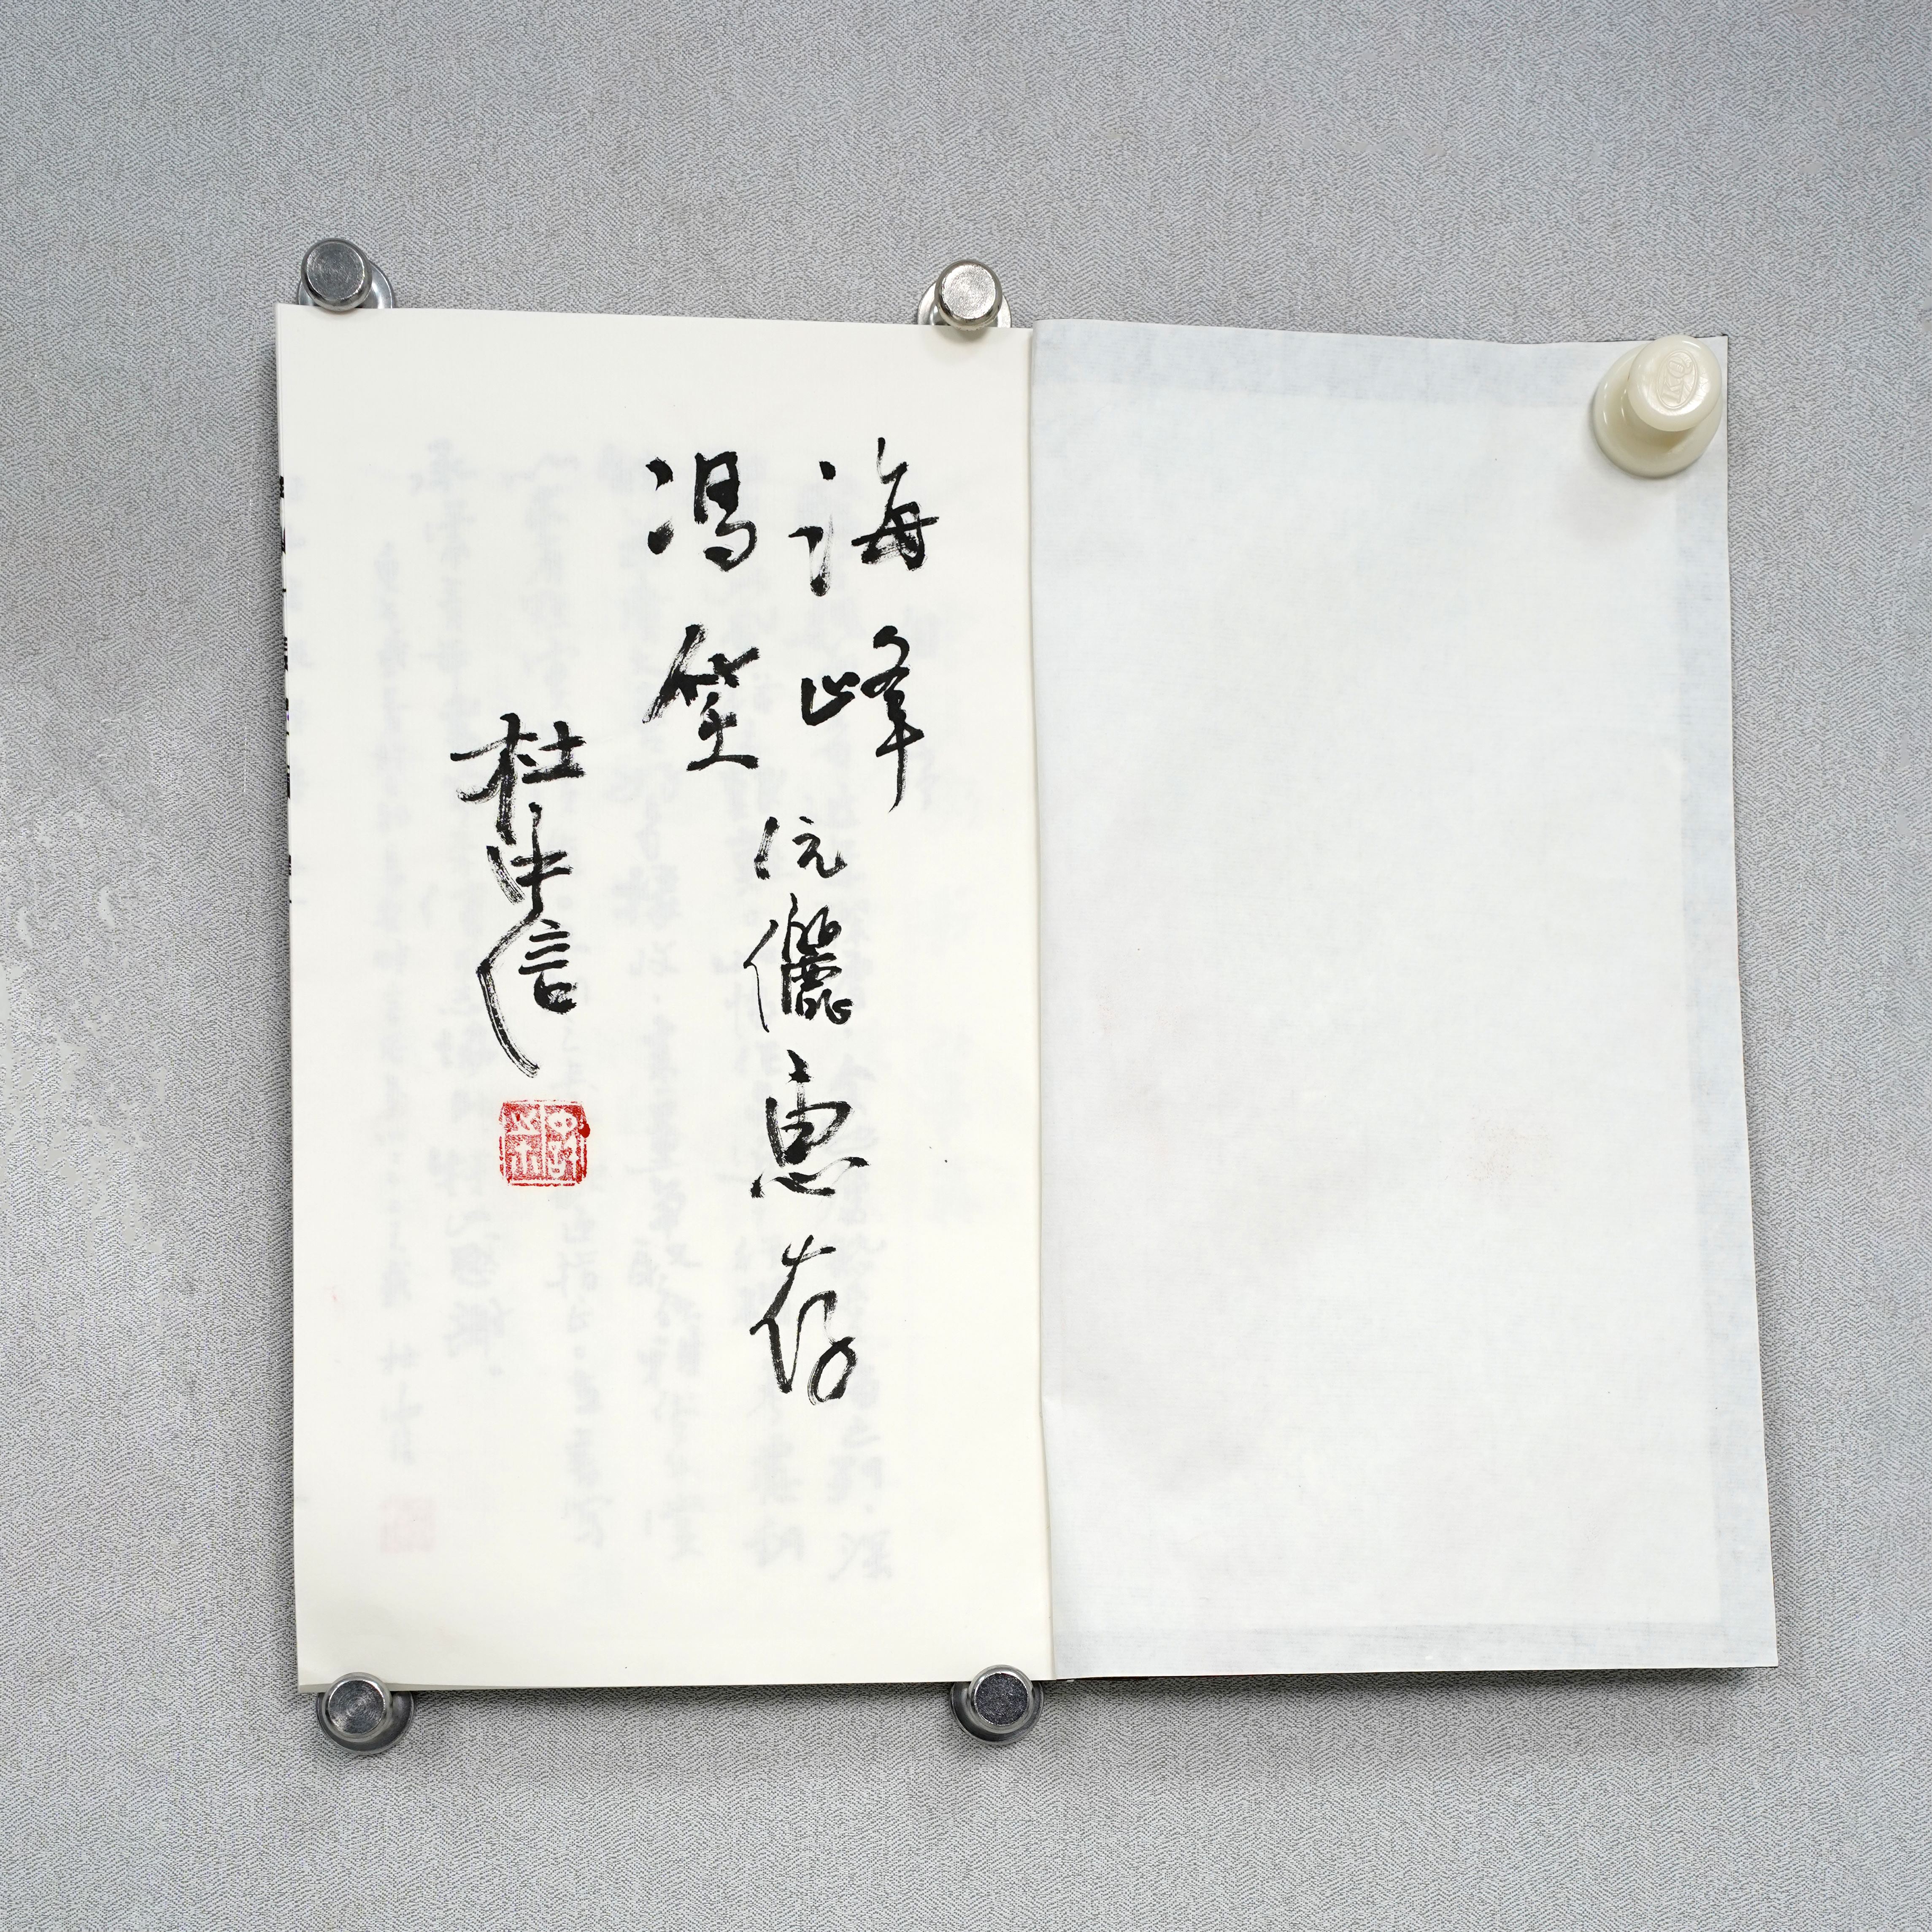 海峰
冯笙
伉儷惠存
杜中信